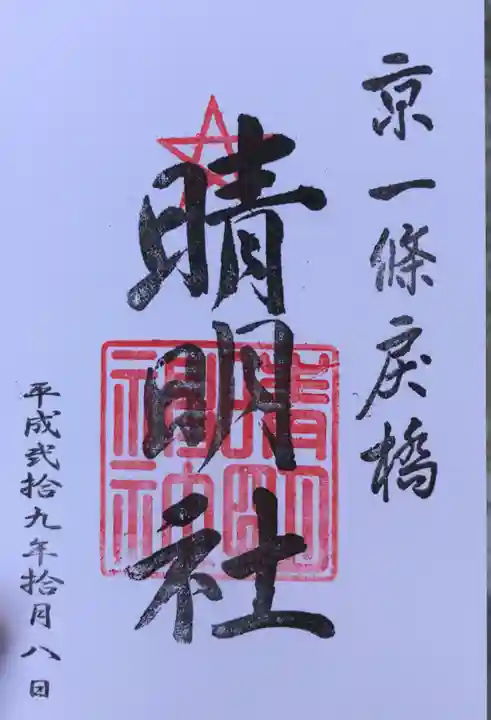 京一條戻橋
晴明社
晴明
神社
平成弐拾九年拾月八日